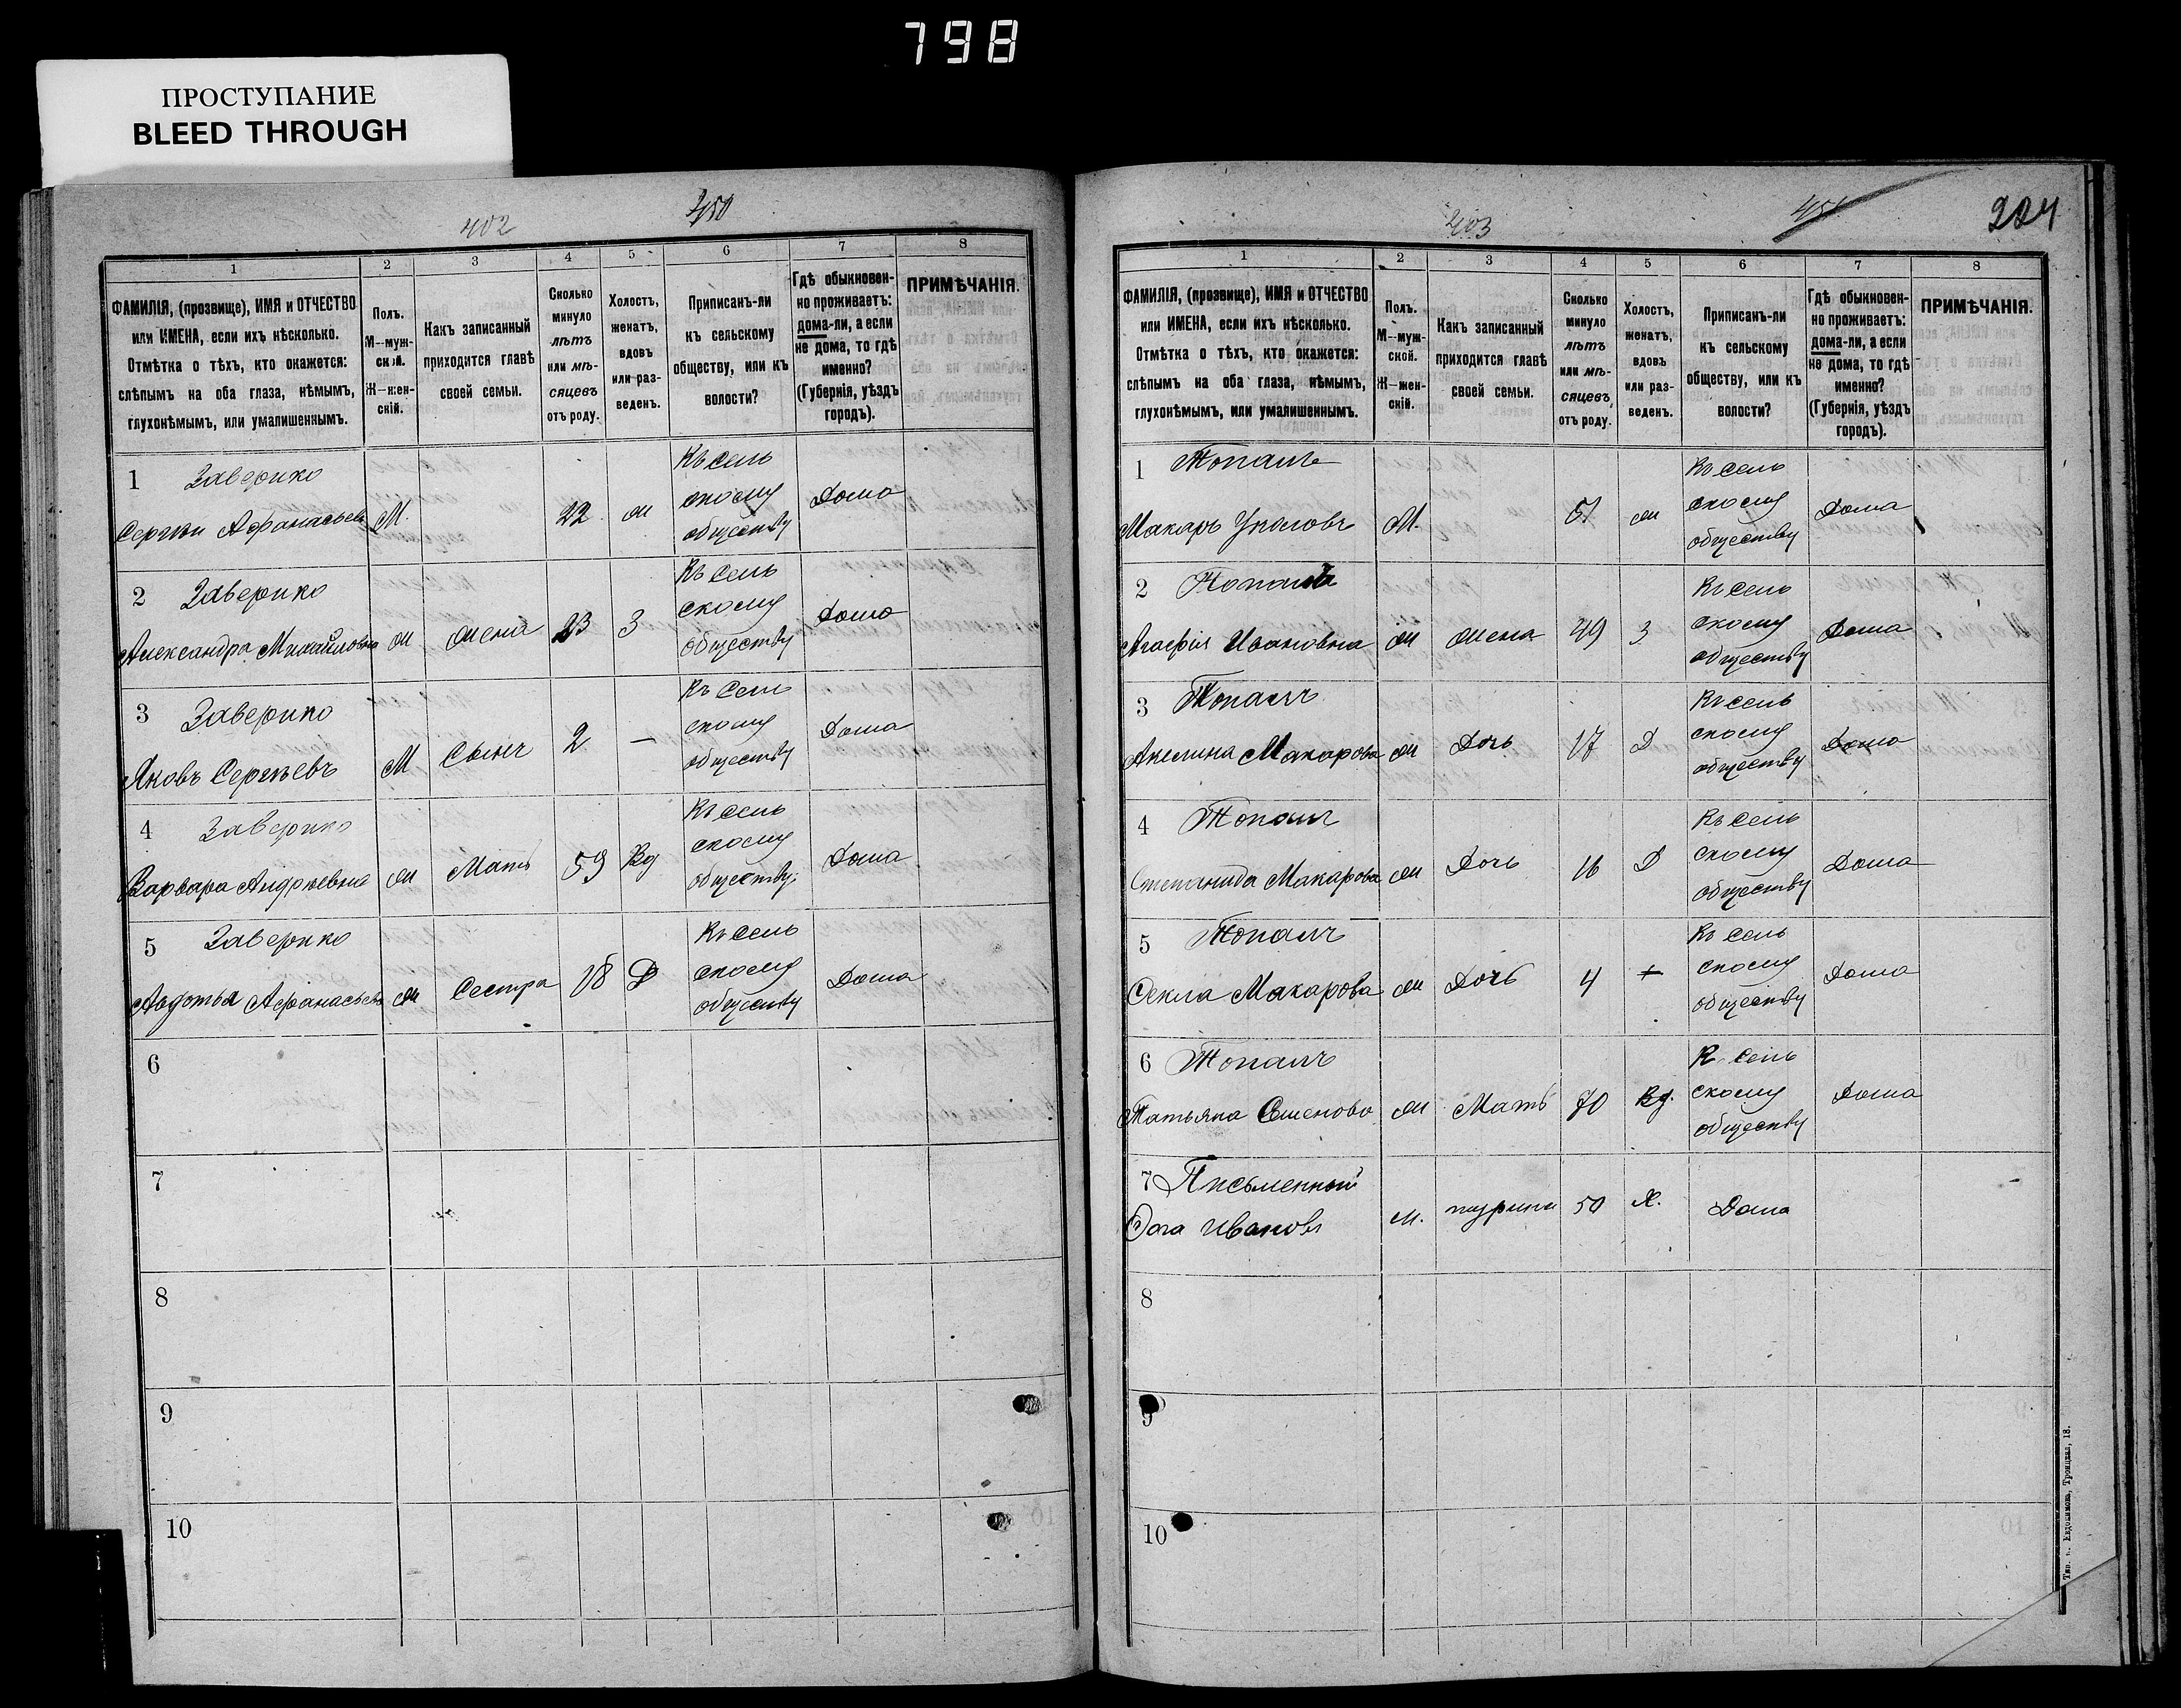 798
ПРОСТУПАНИЕ
BLEED THROUGH
402 450
1 2 3 4 5 6 7 8
ФАМИЛІЯ, (прозвище), ИМЯ и ОТЧЕСТВО или ИМЕНА, если ихъ нѣсколько. Отмѣтка о тѣхъ, кто окажется: слѣпымъ на оба глаза, нѣмымъ, глухонѣмымъ, или умалишеннымъ.
Полъ. М—мужской. Ж—женскій.
Какъ записанный приходится главѣ своей семьи.
Сколько минуло лѣтъ или мѣсяцевъ отъ роду.
Холостъ, женатъ, вдовъ или разведенъ.
Приписанъ-ли къ сельскому обществу, или къ волости?
Гдѣ обыкновенно проживаетъ: дома-ли, а если не дома, то гдѣ именно? (Губернія, уѣздъ городъ).
ПРИМѢЧАНІЯ.
1 Заверико
Сергѣй Афанасьевъ М. 22 ж Къ сельскому обществу Дома
2 Заверико
Александра Михайловна ж жена 23 З Къ сельскому обществу Дома
3 Заверико
Яковъ Сергѣевъ М Сынъ 2 — Къ сельскому обществу Дома
4 Заверико
Варвара Андреевна ж Мать 59 Вд Къ сельскому обществу Дома
5 Заверико
Авдотья Афанасьева ж Сестра 18 Д Къ сельскому обществу Дома
6
7
8
9
10
403 451 224
1 2 3 4 5 6 7 8
ФАМИЛІЯ, (прозвище), ИМЯ и ОТЧЕСТВО или ИМЕНА, если ихъ нѣсколько. Отмѣтка о тѣхъ, кто окажется: слѣпымъ на оба глаза, нѣмымъ, глухонѣмымъ, или умалишеннымъ.
Полъ. М—мужской. Ж—женскій.
Какъ записанный приходится главѣ своей семьи.
Сколько минуло лѣтъ или мѣсяцевъ отъ роду.
Холостъ, женатъ, вдовъ или разведенъ.
Приписанъ-ли къ сельскому обществу, или къ волости?
Гдѣ обыкновенно проживаетъ: дома-ли, а если не дома, то гдѣ именно? (Губернія, уѣздъ городъ).
ПРИМѢЧАНІЯ.
1 Топалъ
Макаръ М. 51 ж Къ сельскому обществу Дома
2 Топалъ
Агафія Ивановна ж жена 49 З Къ сельскому обществу Дома
3 Топалъ
Акелина Макарова ж Дочь 17 Д Къ сельскому обществу Дома
4 Топалъ
Степанида Макарова ж Дочь 16 Д Къ сельскому обществу Дома
5 Топалъ
Фекла Макарова ж Дочь 4 Къ сельскому обществу Дома
6 Топалъ
Татьяна Семенова ж Мать 70 Вд. К сельскому обществу Дома
7 Письменный
Иванова м. 50 Х. Дома
8
9
10